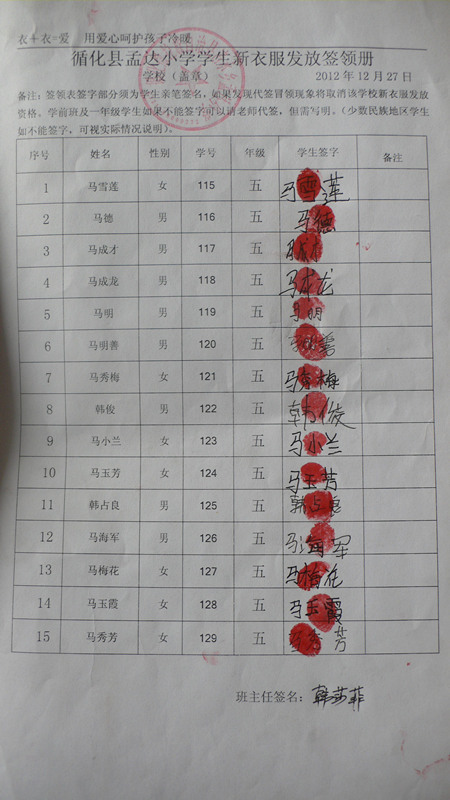 衣+衣=爱 用爱心呵护孩子冷暖
循化县孟达小学学生新衣服发放签领册
学校（盖章） 2012年12月27日
备注：签领表签字部分须为学生亲笔签名，如果发现代签冒领现象将取消该学校新衣服发放
资格。学前班及一年级学生如果不能签字可以请老师代签，但需写明。（少数民族地区学生
如不能签字，可视实际情况说明）。
序号 姓名 性别 学号 年级 学生签字 备注
1 马雪莲 女 115 五 马雪莲
2 马德 男 116 五 马德
3 马成才 男 117 五
4 马成龙 男 118 五 马成龙
5 马明 男 119 五 马明
6 马明善 男 120 五 马明善
7 马秀梅 女 121 五 马秀梅
8 韩俊 男 122 五 韩俊
9 马小兰 女 123 五 马小兰
10 马玉芳 女 124 五 马玉芳
11 韩占良 男 125 五 韩占良
12 马海军 男 126 五 马海军
13 马梅花 女 127 五 马梅花
14 马玉霞 女 128 五 马玉霞
15 马秀芳 女 129 五 马秀芳
班主任签名：韩莎菲